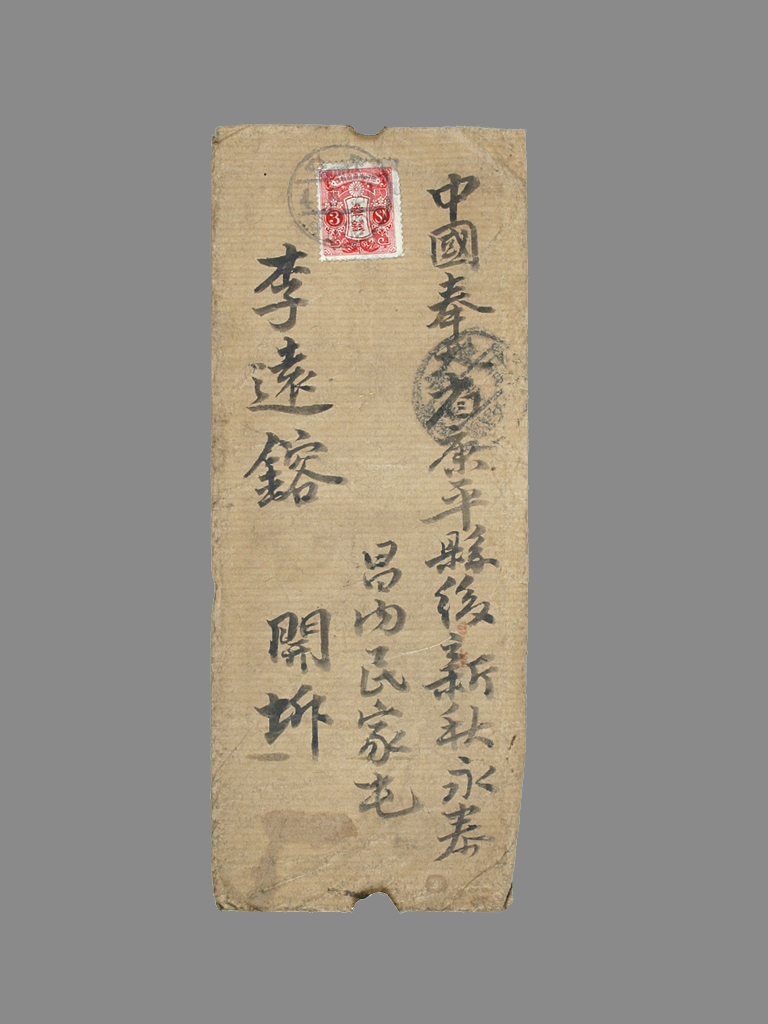 中國奉天省康平縣後新秋永泰
昌內民家屯
李遠鎔
開拆
3 參錢 Sn